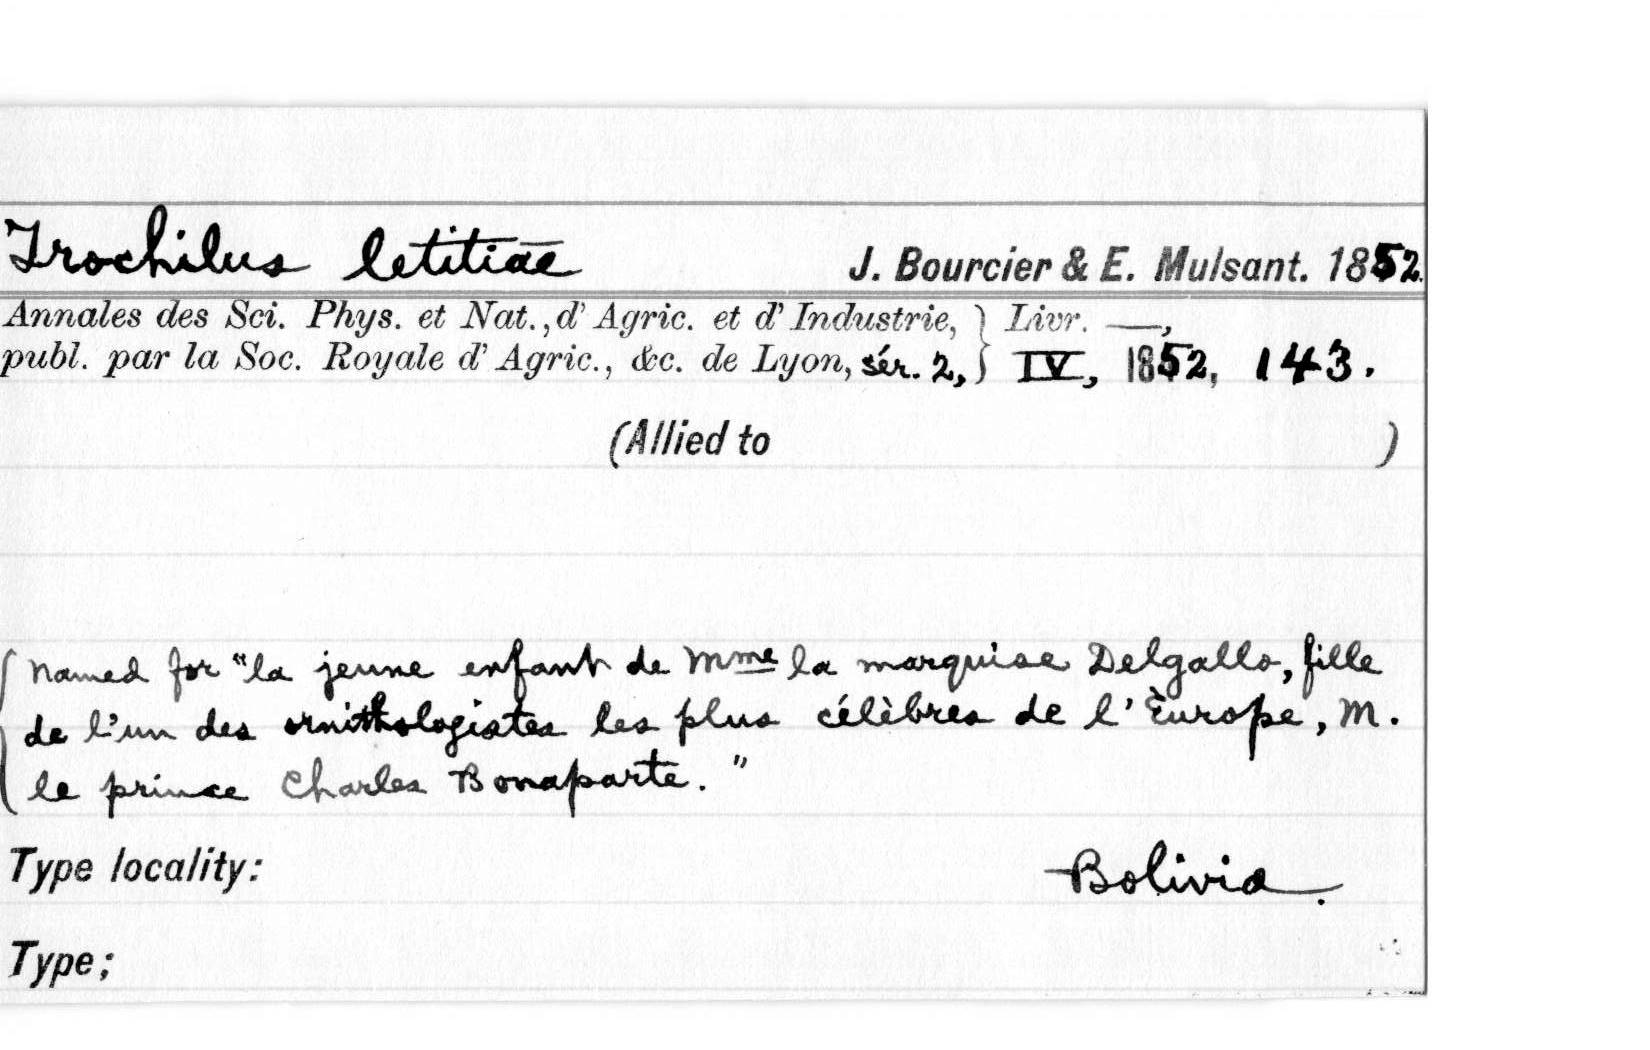 Trochilus letitiae J. Bourcier & E. Mulsant. 1852.
Annales des Sci. Phys. et Nat., d' Agric. et d' Industrie, } Livr. —,
publ. par la Soc. Royale d' Agric., &c. de Lyon, sér. 2, } IV, 1852, 143.
(Allied to )
Named for "la jeune enfant de Mme la marquise Delgallo, fille
de l'un des ornithologistes les plus célèbres de l'Èurope, M.
le prince Charles Bonaparte."
Type locality: Bolivia.
Type;